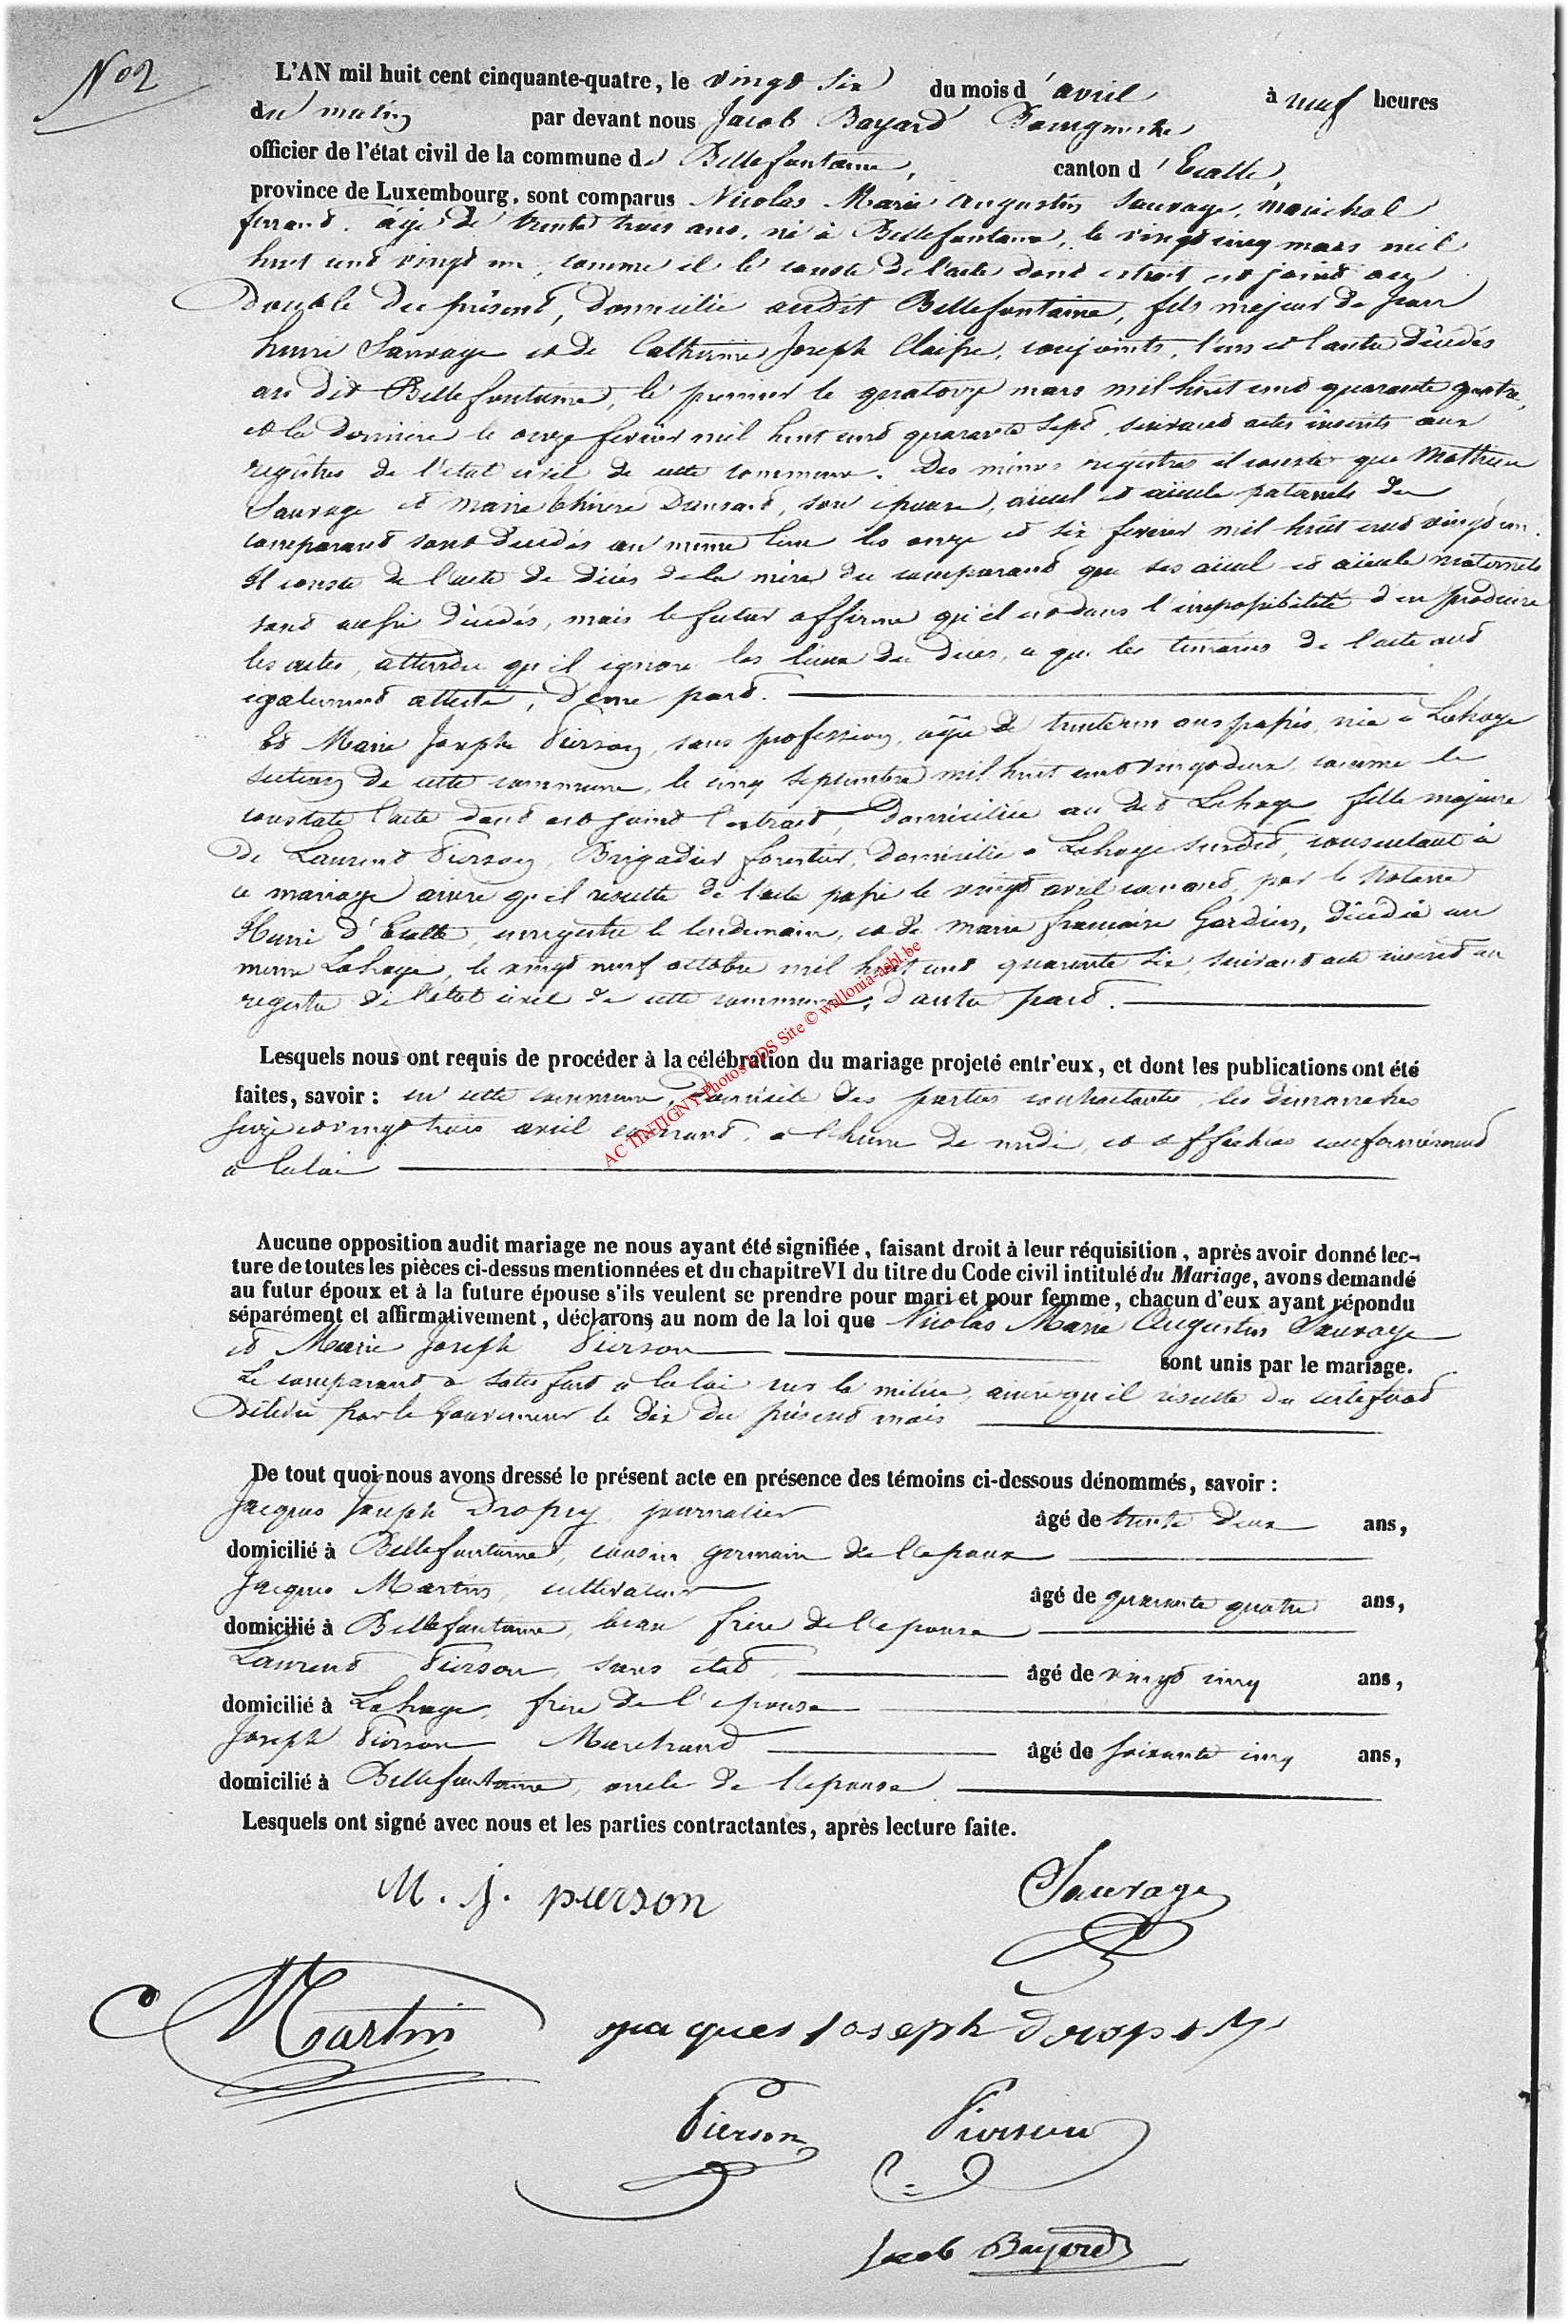 No 2
L'AN mil huit cent cinquante-quatre, le vingt six du mois d'avril à neuf heures
du matin par devant nous Jacob Bayard Bourgmestre
officier de l'état civil de la commune de Bellefontaine, canton d'Etalle,
province de Luxembourg, sont comparus Nicolas Marie Augustin Sauvage, maréchal
ferrant, âgé de trente trois ans, né à Bellefontaine, le vingt cinq mars mil
huit cent vingt un, comme il le conste de l'acte dont extrait est joint au
Double du présent, domicilié audit Bellefontaine, fils majeur de Jean
henri Sauvage et de Catherine Joseph Claisse, conjoints, l'un et l'autre décédés
au dit Bellefontaine, le premier le quatorze mars mil huit cent quarante quatre,
et la dernière le onze fevrier mil huit cent quarante sept, suivant actes inscrits aux
registres de l'état civil de cette commune. Des mêmes registres il conste que Mathieu
Sauvage et Marie Thérèse , son épouse, aïeul et aïeule paternels du
comparant sont décédés au même lieu les onze et six fevrier mil huit cent vingt un.
Il conste de l'acte de décès de la mère du comparant que ses aïeul et aïeule maternels
sont aussi décédés, mais le futur affirme qu'il est dans l'impossibilité d'en produire
les actes, attendu qu'il ignore les lieux du décès, ce que les témoins de l'acte ont
également attesté, d'une part.
Et Marie Joseph Pierson, sans profession, agée de trente un ans passés, née à Lahage
section de cette commune, le cinq septembre mil huit cent vingt deux, comme le
constate l'acte dont est joint l'extrait, domiciliée au dit Lahage fille majeure
de Laurent Pierson, Brigadier forestier, domicilié à Lahage susdit, consentant à
ce mariage ainsi qu'il résulte de l'acte passé le vingt avril courant, par le Notaire
Henri d'Etalle, enregistré le lendemain, et de Marie françoise Gardien, décédée au
même Lahage, le vingt neuf octobre mil huit cent quarante six, suivant acte inscrit au
registre de l'état civil de cette commune, d'autre part.
AC TINTIGNY Photos VDS Site © wallonia-asbl.be
Lesquels nous ont requis de procéder à la célébration du mariage projeté entr'eux, et dont les publications ont été
faites, savoir : en cette commune, domicile des parties contractantes, les dimanches
seize et vingt trois avril courant, à l'heure de midi, et affichées conformément
à la loi
Aucune opposition audit mariage ne nous ayant été signifiée, faisant droit à leur réquisition, après avoir donné lec-
ture de toutes les pièces ci-dessus mentionnées et du chapitre VI du titre du Code civil intitulé du Mariage, avons demandé
au futur époux et à la future épouse s'ils veulent se prendre pour mari et pour femme, chacun d'eux ayant répondu
séparément et affirmativement, déclarons au nom de la loi que Nicolas Marie Augustin Sauvage
et Marie Joseph Pierson sont unis par le mariage.
Le comparant a satisfait à la loi sur la milice, ainsi qu'il résulte du certificat
Délivré par le Gouverneur le dix du présent mois
De tout quoi nous avons dressé le présent acte en présence des témoins ci-dessous dénommés, savoir :
Jacques Joseph Dropsy, journalier âgé de trente deux ans,
domicilié à Bellefontaine, cousin germain de l'epoux
Jacques Martin, cultivateur âgé de quarante quatre ans,
domicilié à Bellefontaine, beau frère de l'epouse
Laurent Pierson, sans état, âgé de vingt cinq ans,
domicilié à Lahage, frère de l'epouse
Joseph Pierson Marchand âgé de soixante cinq ans,
domicilié à Bellefontaine, oncle de l'epouse
Lesquels ont signé avec nous et les parties contractantes, après lecture faite.
M. j. pierson Sauvage
Martin jacques joseph dropsy
Pierson Pierson
Jacob Bayard